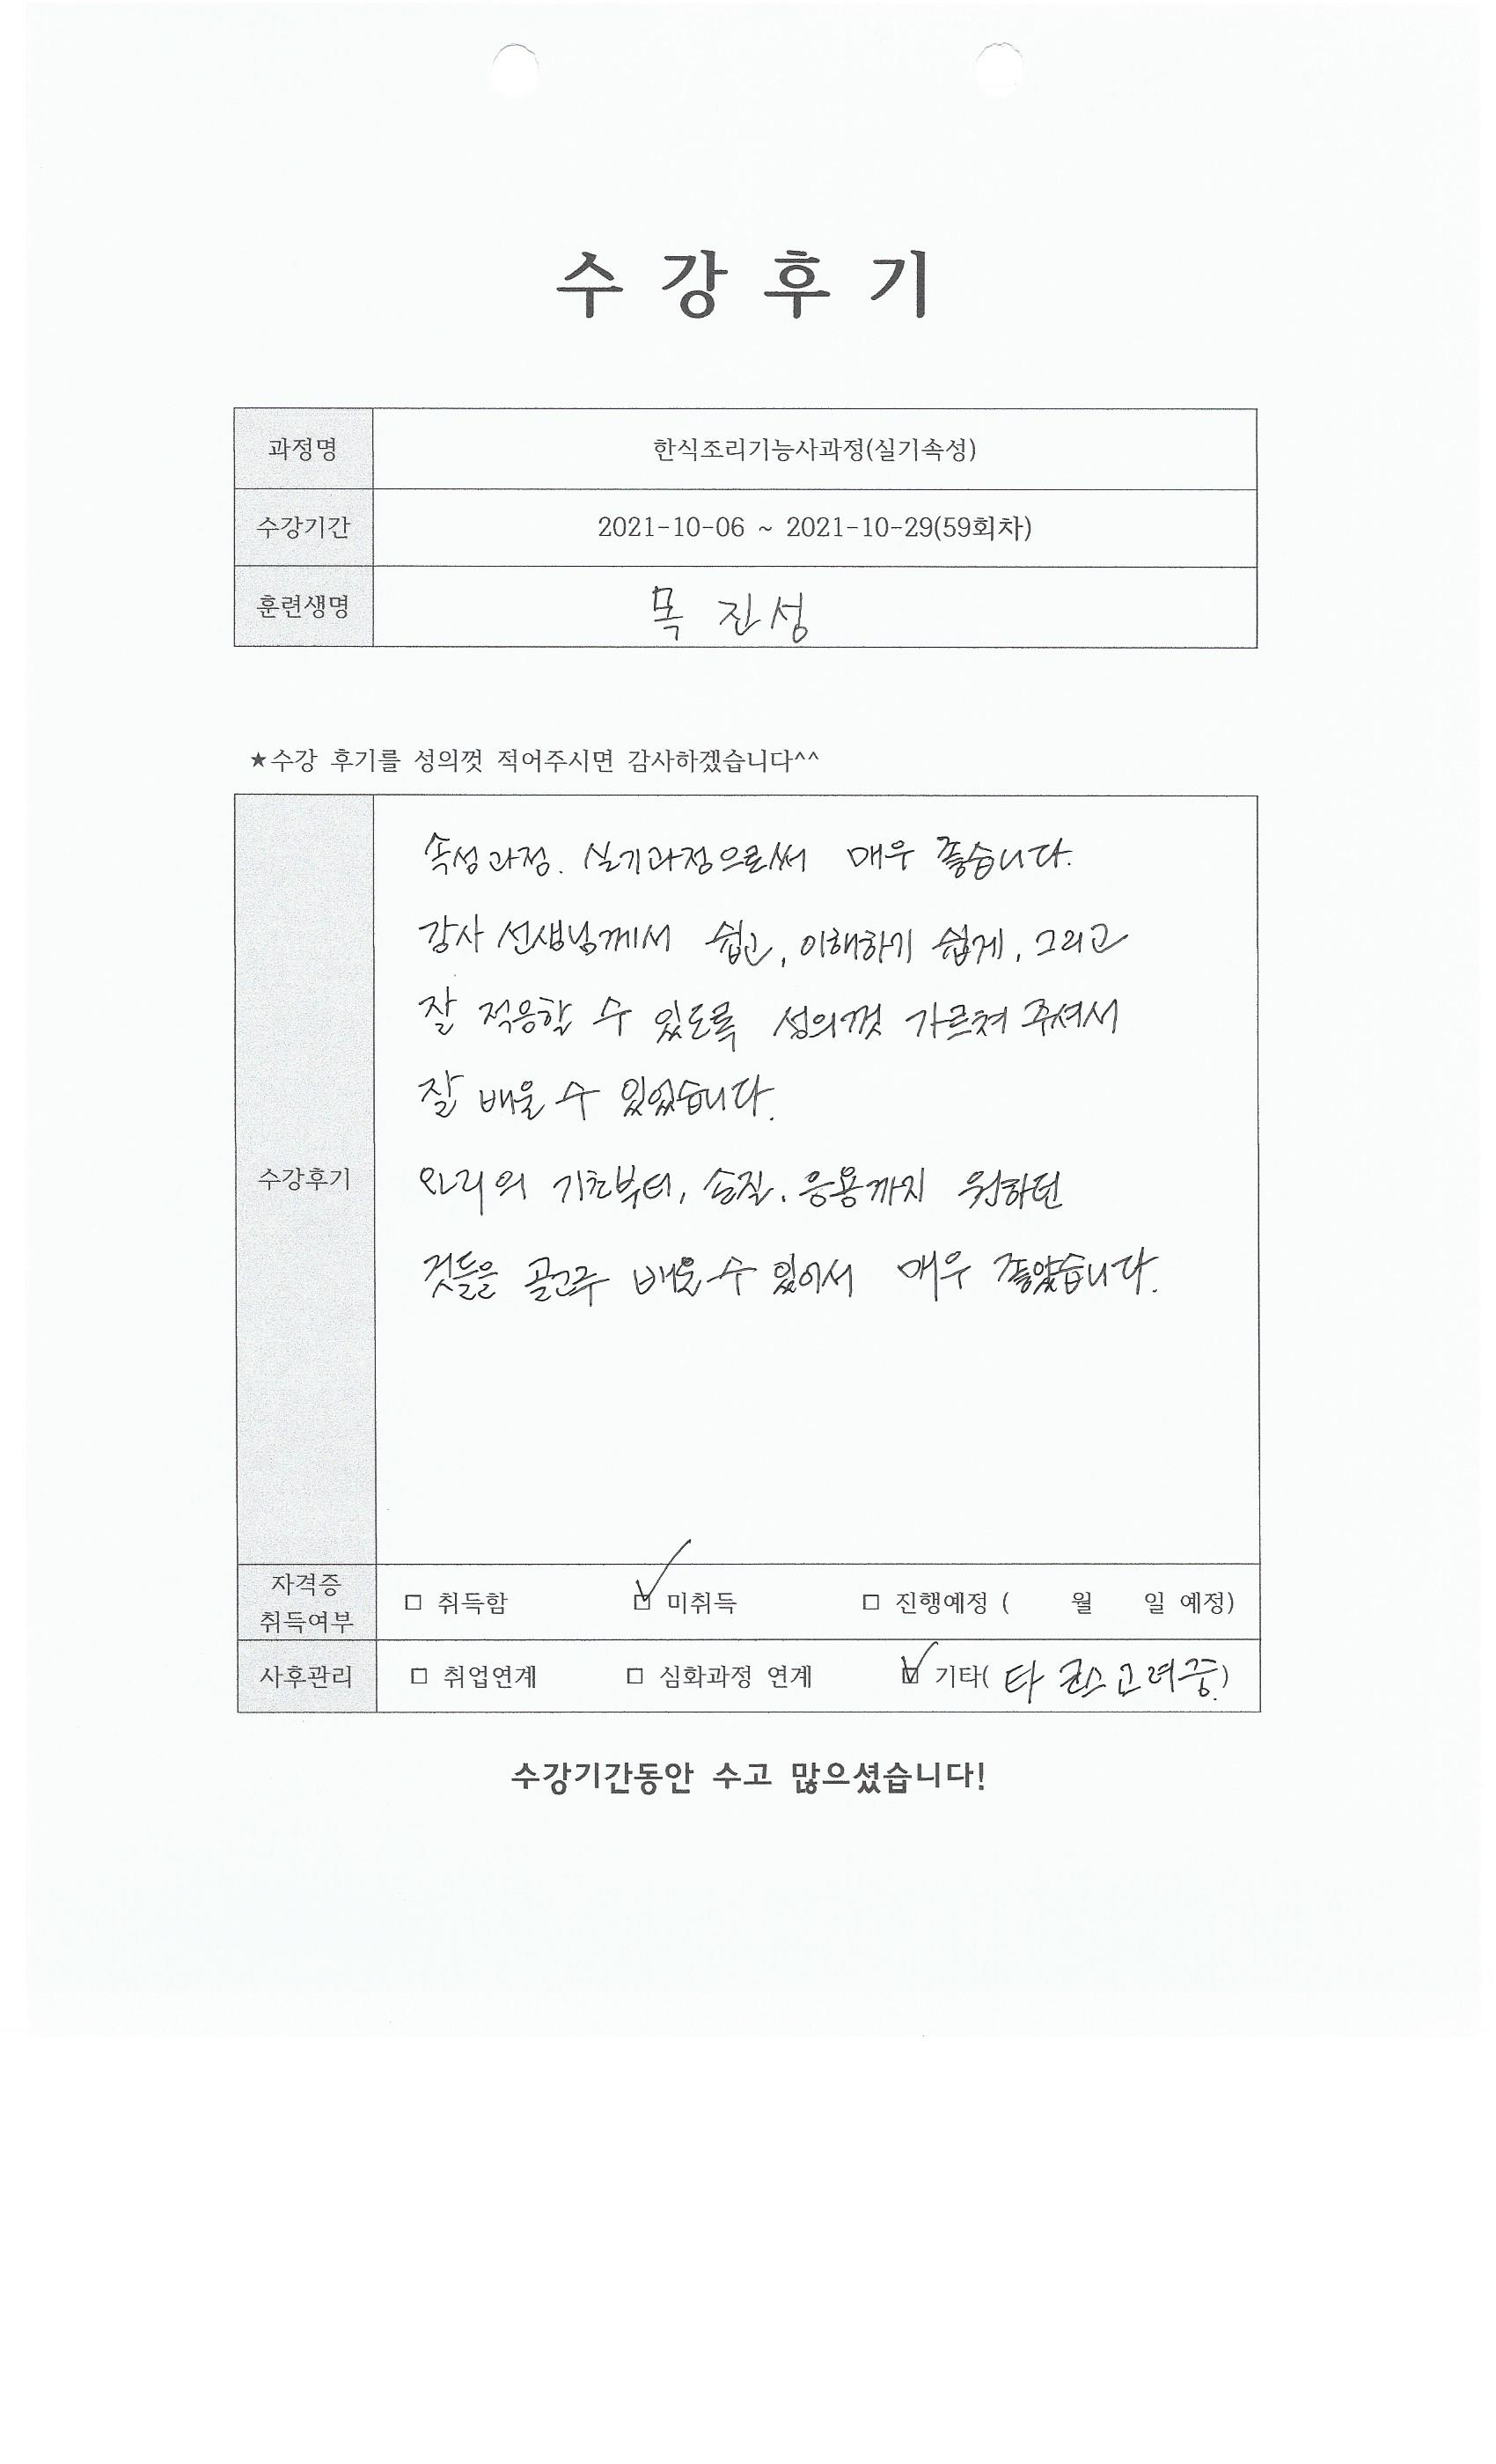 수 강 후 기
과정명 한식조리기능사과정(실기속성)
수강기간 2021-10-06 ~ 2021-10-29(59회차)
훈련생명 목 진성
★수강 후기를 성의껏 적어주시면 감사하겠습니다^^
속성과정. 실기과정으로써 매우 좋습니다.
강사 선생님께서 쉽고, 이해하기 쉽게, 그리고
잘 적응할 수 있도록 성의껏 가르쳐 주셔서
잘 배울 수 있었습니다.
수강후기
요리의 기초부터, 손질, 응용까지 원하던
것들을 골고루 배울 수 있어서 매우 좋았습니다.
자격증
취득여부
□ 취득함 ☑ 미취득 □ 진행예정 ( 월 일 예정)
사후관리 □ 취업연계 □ 심화과정 연계 ☑ 기타( 타 코스 고려중.)
수강기간동안 수고 많으셨습니다!